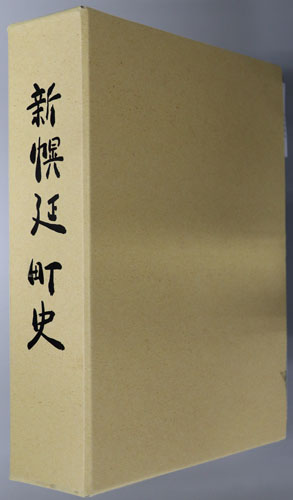 新幌延町史